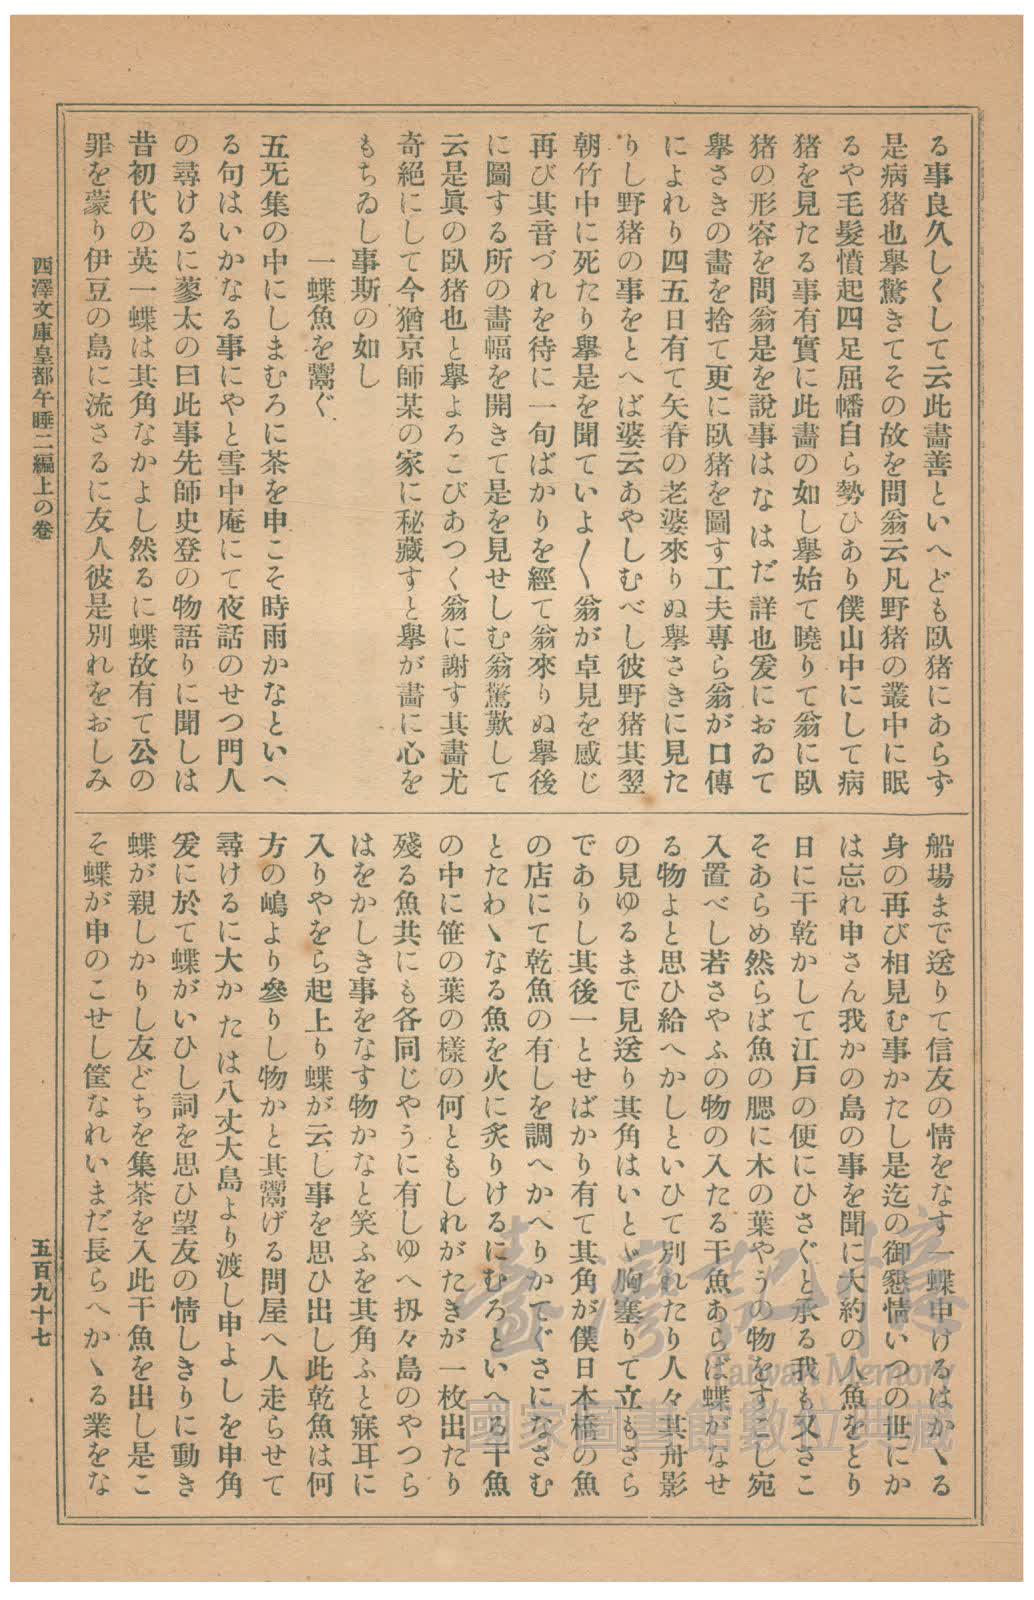 る事良久しくして云此畵善といへども臥猪にあらず
是病猪也擧驚きてその故を問翁云凡野猪の叢中に眠
るや毛髮憤起四足屈幡自ら勢ひあり僕山中にして病
猪を見たる事有實に此畵の如し擧始て曉りて翁に臥
猪の形容を問翁是を說事はなはだ詳也爰におゐて
擧さきの畵を捨て更に臥猪を圖す工夫專ら翁が口傳
によれり四五日有て矢脊の老婆來りぬ擧さきに見た
りし野猪の事をとへば婆云あやしむべし彼野猪其翌
朝竹中に死たり擧是を聞ていよ〱翁が卓見を感じ
再び其音づれを待に一旬ばかりを經て翁來りぬ擧後
に圖する所の畵幅を開きて是を見せしむ翁驚歎して
云是眞の臥猪也と擧よろこびあつく翁に謝す其畵尤
奇絕にして今猶京師某の家に秘藏すと擧が畵に心を
もちゐし事斯の如し
一蝶魚を鬻ぐ
五旡集の中にしまむろに茶を申こそ時雨かなといへ
る句はいかなる事にやと雪中庵にて夜話のせつ門人
の尋けるに蓼太の曰此事先師史登の物語りに聞しは
昔初代の英一蝶は其角なかよし然るに蝶故有て公の
罪を蒙り伊豆の島に流さるに友人彼是別れをおしみ
船場まで送りて信友の情をなす一蝶申けるはかゝる
身の再び相見む事かたし是迄の御懇情いつの世にか
は忘れ申さん我かの島の事を聞に大約の人魚をとり
日に干乾かして江戸の便にひさぐと承る我も又さこ
そあらめ然らば魚の腮に木の葉やうの物をすこし宛
入置べし若さやふの物の入たる干魚あらば蝶がなせ
る物よと思ひ給へかしといひて別れたり人々其舟影
の見ゆるまで見送り其角はいとゞ胸塞りて立もさら
でありし其後一とせばかり有て其角が僕日本橋の魚
の店にて乾魚の有しを調へかへりかてぐさになさむ
とたわゝなる魚を火に炙りけるにむろといへる干魚
の中に笹の葉の樣の何ともしれがたきが一枚出たり
殘る魚共にも各同じやうに有しゆへ扨々島のやつら
はをかしき事をなす物かなと笑ふを其角ふと寐耳に
入りやをら起上り蝶が云し事を思ひ出し此乾魚は何
方の嶋より參りし物かと其鬻げる問屋へ人走らせて
尋けるに大かたは八丈大島より渡し申よしを申角
爰に於て蝶がいひし詞を思ひ望友の情しきりに動き
蝶が親しかりし友どちを集茶を入此干魚を出し是こ
そ蝶が申のこせし筐なれいまだ長らへかゝる業をな
西澤文庫皇都午睡二編上の卷
五百九十七
臺灣記憶
Taiwan Memory
國家圖書館數位典藏